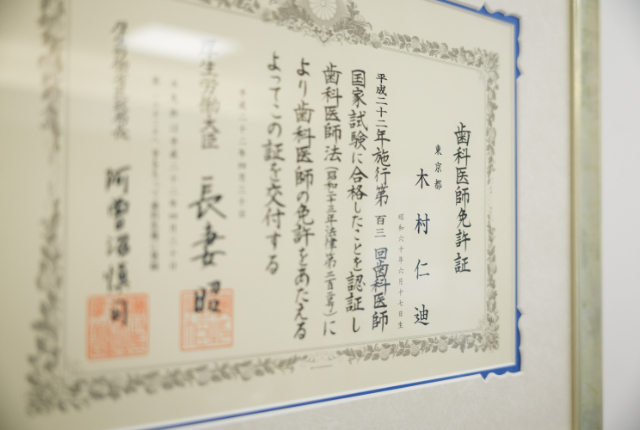 歯科医師免許証
東京都
木村仁迪
昭和六十年六月十七日生
平成二十二年施行第百三回歯科医師
国家試験に合格したことを認証し
歯科医師法（昭和二十三年法律第二百二号）に
より歯科医師の免許をあたえる
よってこの証を交付する
平成二十二年四月二十日
厚生労働大臣
長妻昭